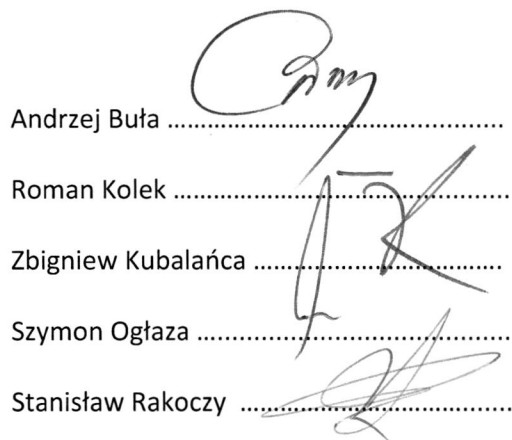 Andrzej Buła ..........................................
Roman Kolek ..........................................
Zbigniew Kubalańca ...............................
Szymon Ogłaza .......................................
Stanisław Rakoczy ..................................